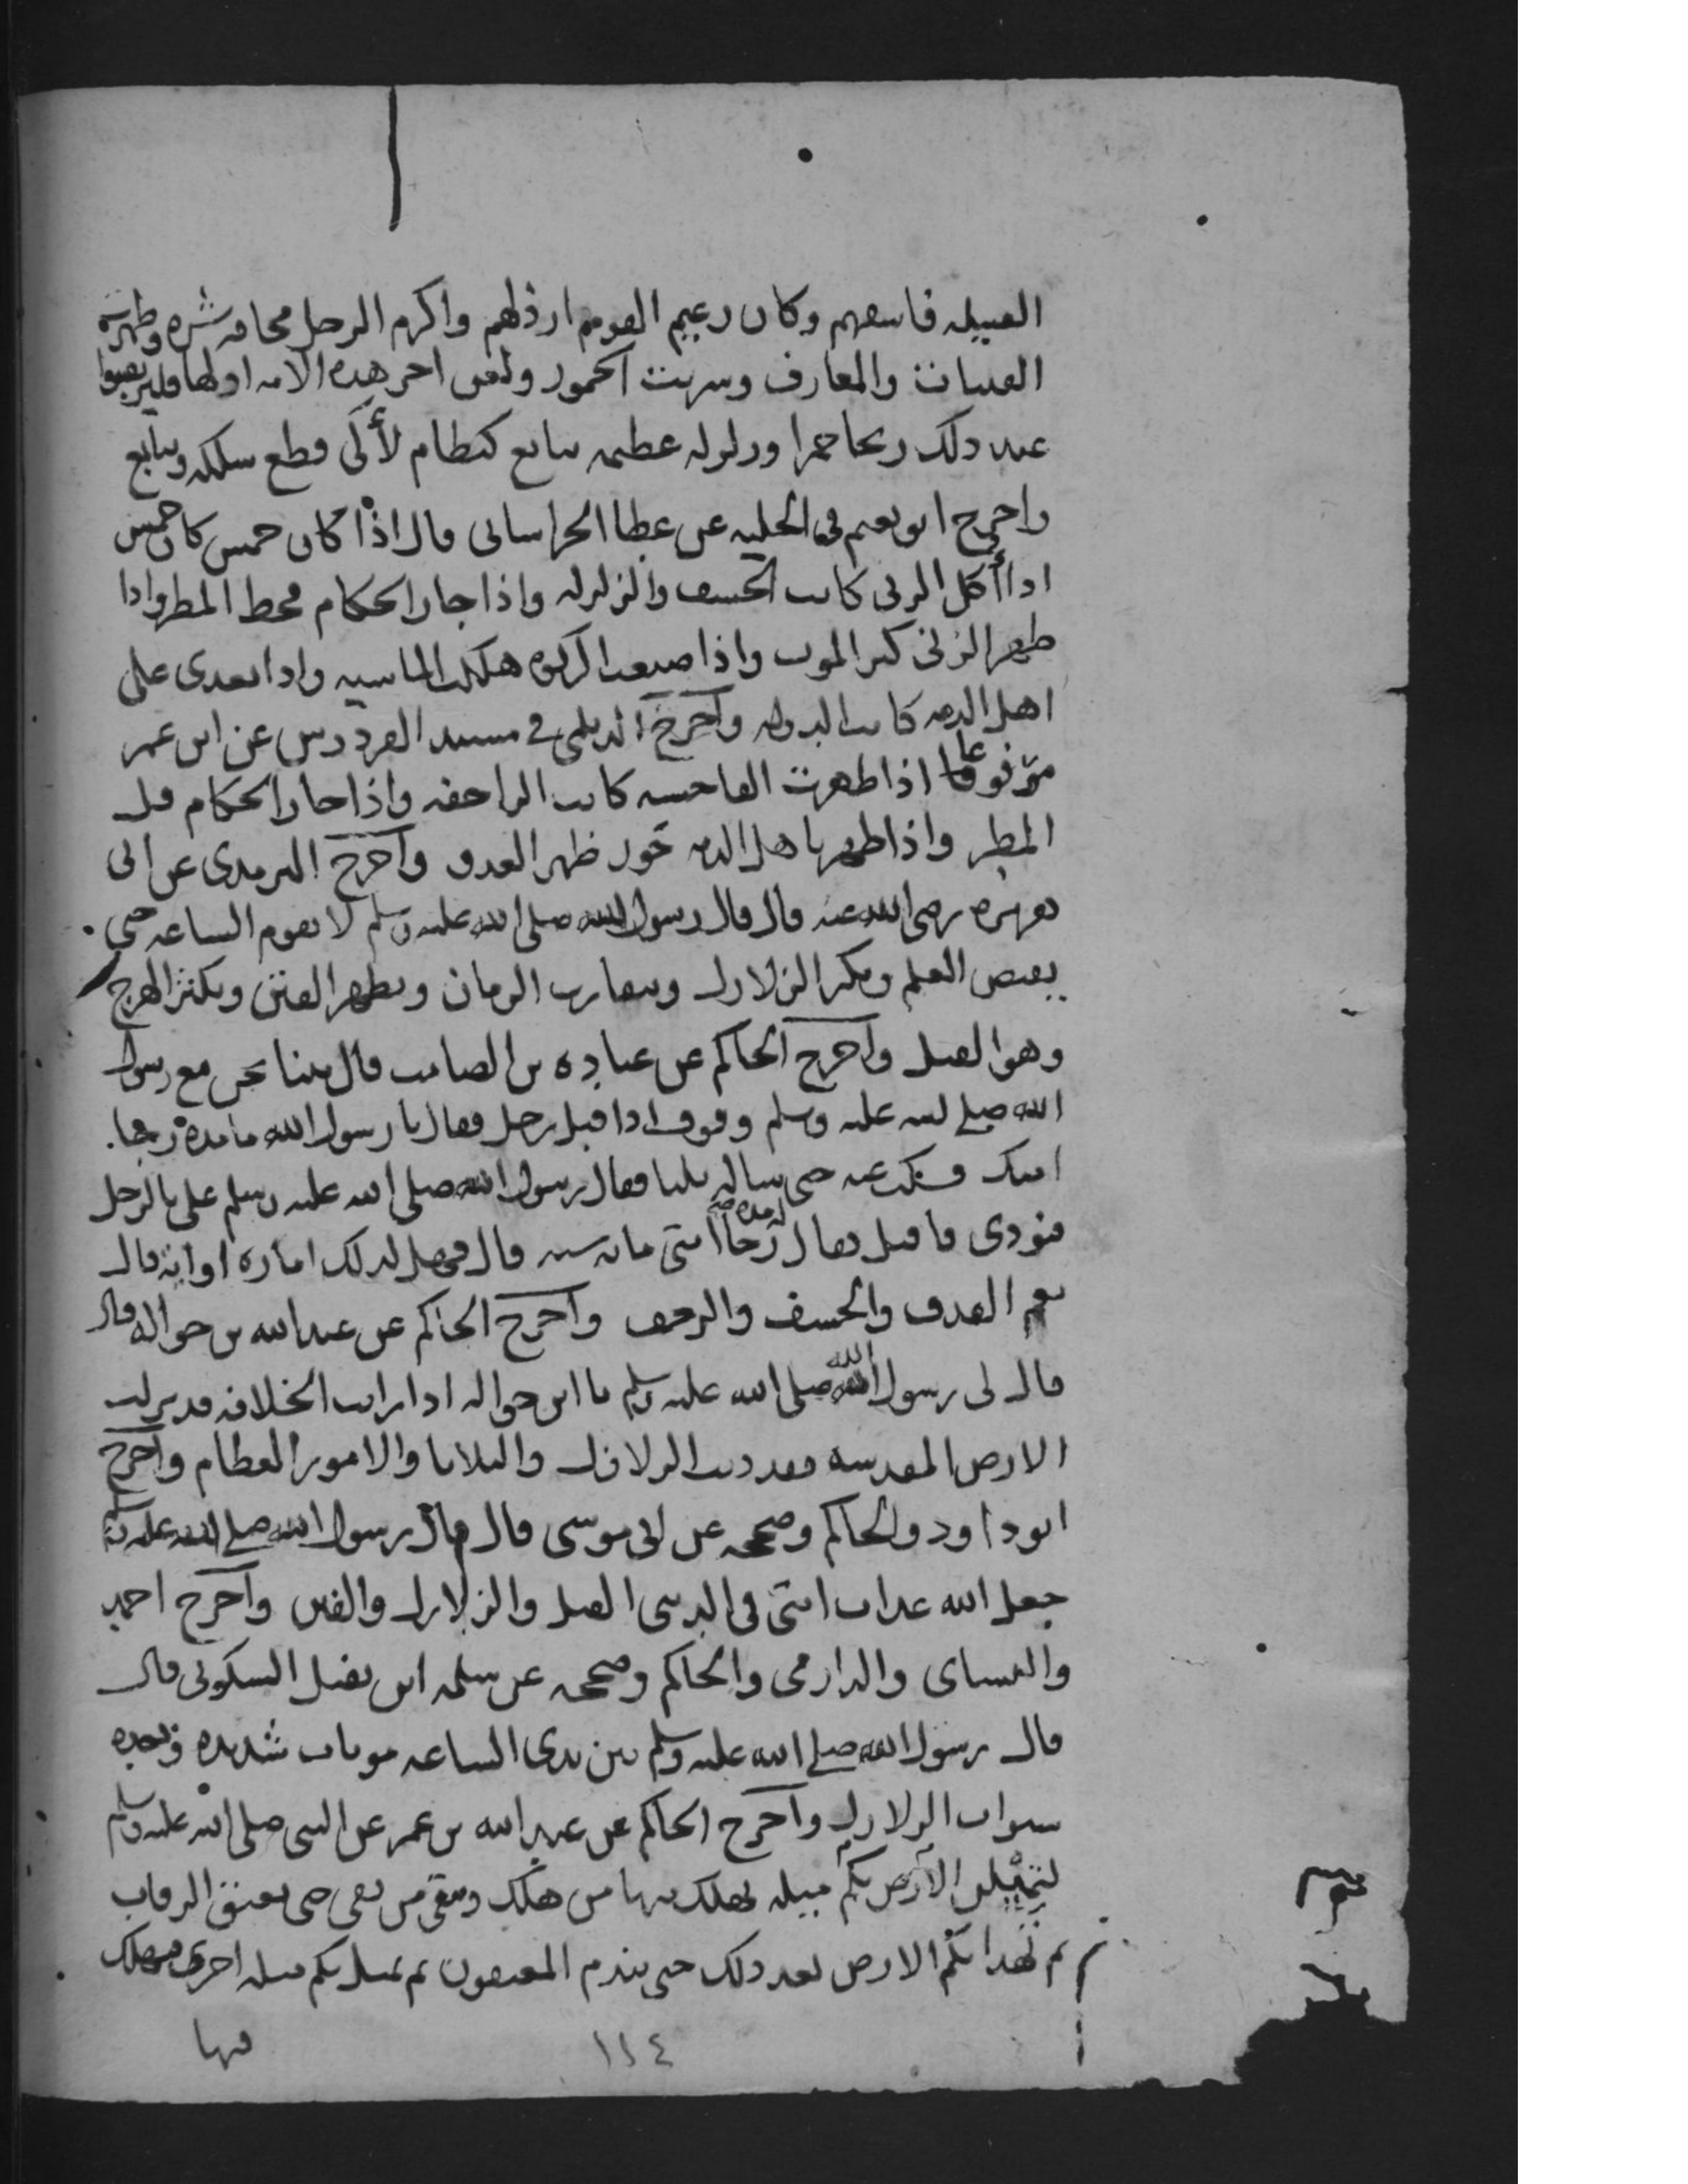 القبيله فاسقهم وكان زعيم القوم ارذلهم واكرم الرجل مخافه شره وظهرت
القينات والمعازف وشربت الخمور ولعن اخر هذه الامه اولها فليرتقبوا
عند ذلك ريحا حمرا وزلزله عظيمه تتابع كنظام لألئ قطع سلكه وتتابع
واخرج ابو نعيم في الحليه عن عطا الخراساني قال اذا كان خمس كان خمس
اذا أكل الربى كانت الخسف والزلزله واذا جار الحكام قحط المطر واذا
ظهر الزنى كثر الموت واذا منعت الزكوه هلكت الماشيه واذا تعدى على
اهل الذمه كانت الدوله واخرج الديلمي في مسند الفردوس عن ابن عمر
مرفوعا اذا ظهرت الفاحشه كانت الراجفه واذا جار الحكام قل
المطر واذا ظهر باهل الذمه ظهر العدو واخرج الترمذي عن ابي
هريره رضي الله عنه قال قال رسول الله صلى الله عليه وسلم لا تقوم الساعه حتى
يقبض العلم وتكثر الزلازل ويتقارب الزمان وتظهر الفتن ويكثر الهرج
وهو القتل واخرج الحاكم عن عباده بن الصامت قال بينا نحن مع رسول
الله صلى الله عليه وسلم وقوف اذا قبل رجل فقال يا رسول الله ما مدة رجا
امتك فسكت عنه حتى ساله ثلثا فقال رسول الله صلى الله عليه وسلم علي بالرجل
فنودي فاقبل فقال مدة رجا امتي مائه سنه قال فهل لذلك اماره او ايه قال
نعم القذف والخسف والرجف واخرج الحاكم عن عبد الله بن حواله قال
قال لي رسول الله صلى الله عليه وسلم يا ابن حواله اذا رايت الخلافه قد نزلت
الارض المقدسه فقد دنت الزلازل والبلايا والامور العظام واخرج
ابو داود والحاكم وصححه عن ابي موسى قال قال رسول الله صلى الله عليه وسلم
جعل الله عذاب امتي في الدنيا القتل والزلازل والفتن واخرج احمد
والنساي والدارمي والحاكم وصححه عن سلمه ابن نفيل السكوني قال
قال رسول الله صلى الله عليه وسلم بين يدي الساعه موتان شديده وبعده
سنوات الزلازل واخرج الحاكم عن عبد الله بن عمر عن النبي صلى الله عليه وسلم
لتميلن الارض بكم ميله يهلك منها من هلك ويبقى من بقي حتى تعتق الرقاب
ثم تهدا بكم الارض بعد ذلك حتى يندم المعتقون ثم تميل بكم ميله اخرى فيهلك
فيها
١١٤